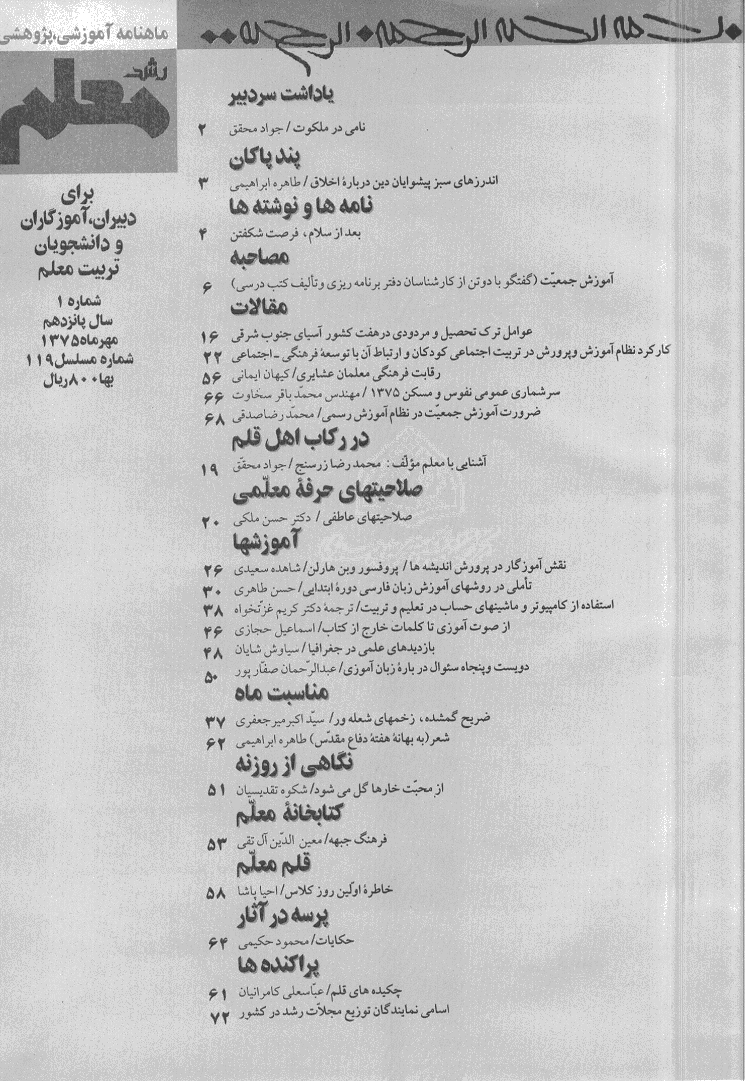 بسم الله الرحمن الرحیم
یاداشت سردبیر
نامی در ملکوت / جواد محقق ۲
پند پاکان
اندرزهای سبز پیشوایان دین دربارهٔ اخلاق / طاهره ابراهیمی ۳
نامه ها و نوشته ها
بعد از سلام، فرصت شکفتن ۴
مصاحبه
آموزش جمعیّت (گفتگو با دوتن از کارشناسان دفتر برنامه ریزی و تألیف کتب درسی) ۶
مقالات
عوامل ترک تحصیل و مردودی درهفت کشور آسیای جنوب شرقی ۱۶
کارکرد نظام آموزش وپرورش در تربیت اجتماعی کودکان و ارتباط آن با توسعهٔ فرهنگی ـ اجتماعی ۲۲
رقابت فرهنگی معلمان عشایری / کیهان ایمانی ۵۶
سرشماری عمومی نفوس و مسکن ۱۳۷۵ / مهندس محمّد باقر سخاوت ۶۶
ضرورت آموزش جمعیّت در نظام آموزش رسمی / محمّد رضاصدقی ۶۸
در رکاب اهل قلم
آشنایی با معلم مؤلّف : محمد رضا زرسنج / جواد محقّق ۱۹
صلاحیتهای حرفهٔ معلّمی
صلاحیتهای عاطفی / دکتر حسن ملکی ۲۰
آموزشها
نقش آموزگار در پرورش اندیشه ها / پروفسور وین هارلن / شاهده سعیدی ۲۶
تأملی در روشهای آموزش زبان فارسی دورهٔ ابتدایی / حسن طاهری ۳۰
استفاده از کامپیوتر و ماشینهای حساب در تعلیم و تربیت / ترجمهٔ دکتر کریم غزّنخواه ۳۸
از صوت آموزی تا کلمات خارج از کتاب / اسماعیل حجازی ۴۶
بازدیدهای علمی در جغرافیا / سیاوش شایان ۴۸
دویست وپنجاه سئوال در بارهٔ زبان آموزی / عبدالرّحمان صفّار پور ۵۰
مناسبت ماه
ضریح گمشده، زخمهای شعله ور / سیّد اکبر میرجعفری ۳۷
شعر (به بهانهٔ هفتهٔ دفاع مقدّس) طاهره ابراهیمی ۶۲
نگاهی از روزنه
از محبّت خارها گل می شود / شکوه تقدیسیان ۵۱
کتابخانهٔ معلّم
فرهنگ جبهه / معین الدّین آل تقی ۵۳
قلم معلّم
خاطرهٔ اوّلین روز کلاس / احیا پاشا ۵۸
پرسه در آثار
حکایات / محمود حکیمی ۶۴
پراکنده ها
چکیده های قلم / عبّاسعلی کامرانیان ۶۱
اسامی نمایندگان توزیع مجلّات رشد در کشور ۷۲
ماهنامه آموزشی،پژوهشی
رشد
معلم
برای
دبیران،آموزگاران
و دانشجویان
تربیت معلم
شماره ۱
سال پانزدهم
مهرماه ۱۳۷۵
شماره مسلسل ۱۱۹
بها ۸۰۰ ریال